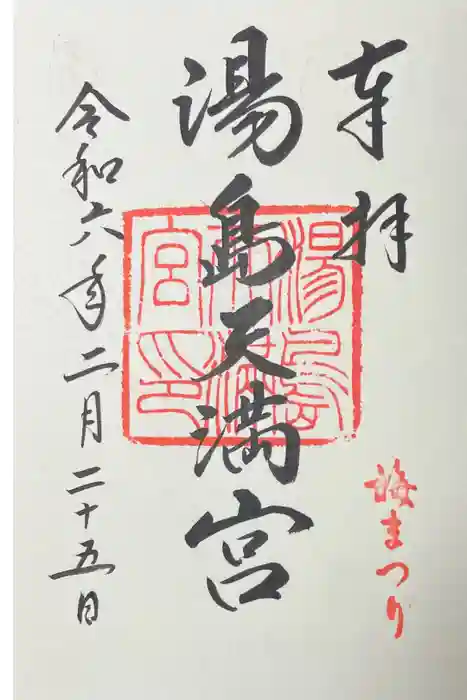 奉拝
湯島天満宮
湯島天満宮印
令和六年二月二十五日
梅まつり